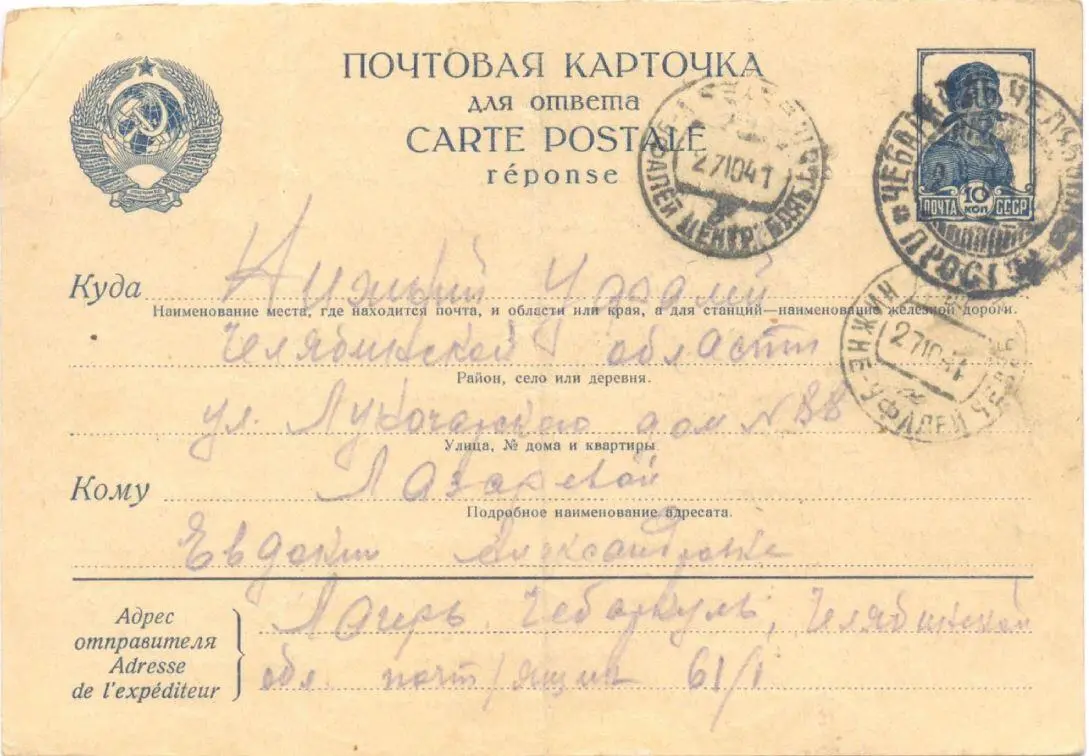 ПОЧТОВАЯ КАРТОЧКА
для ответа
CARTE POSTALE
réponse
ПОЧТА 10 КОП СССР
ЧЕБАРКУЛЬ ЧЕЛЯБ
ПРОСТ
271041
УФАЛЕЙ ЦЕНТР.
Куда Нижный Уфалей
Наименование места, где находится почта, и области или края, а для станций—наименование железной дороги.
Челябинской области
Район, село или деревня.
271041
НИЖНЕ-УФАЛЕЙ
ул. дом №88
Улица, № дома и квартиры
Кому Лазаревой
Подробное наименование адресата.
Евдокии Александровне
Адрес
отправителя
Adresse
de l'expéditeur
Лагерь Чебаркуль, Челябинской
обл. почт/ящик 61/1